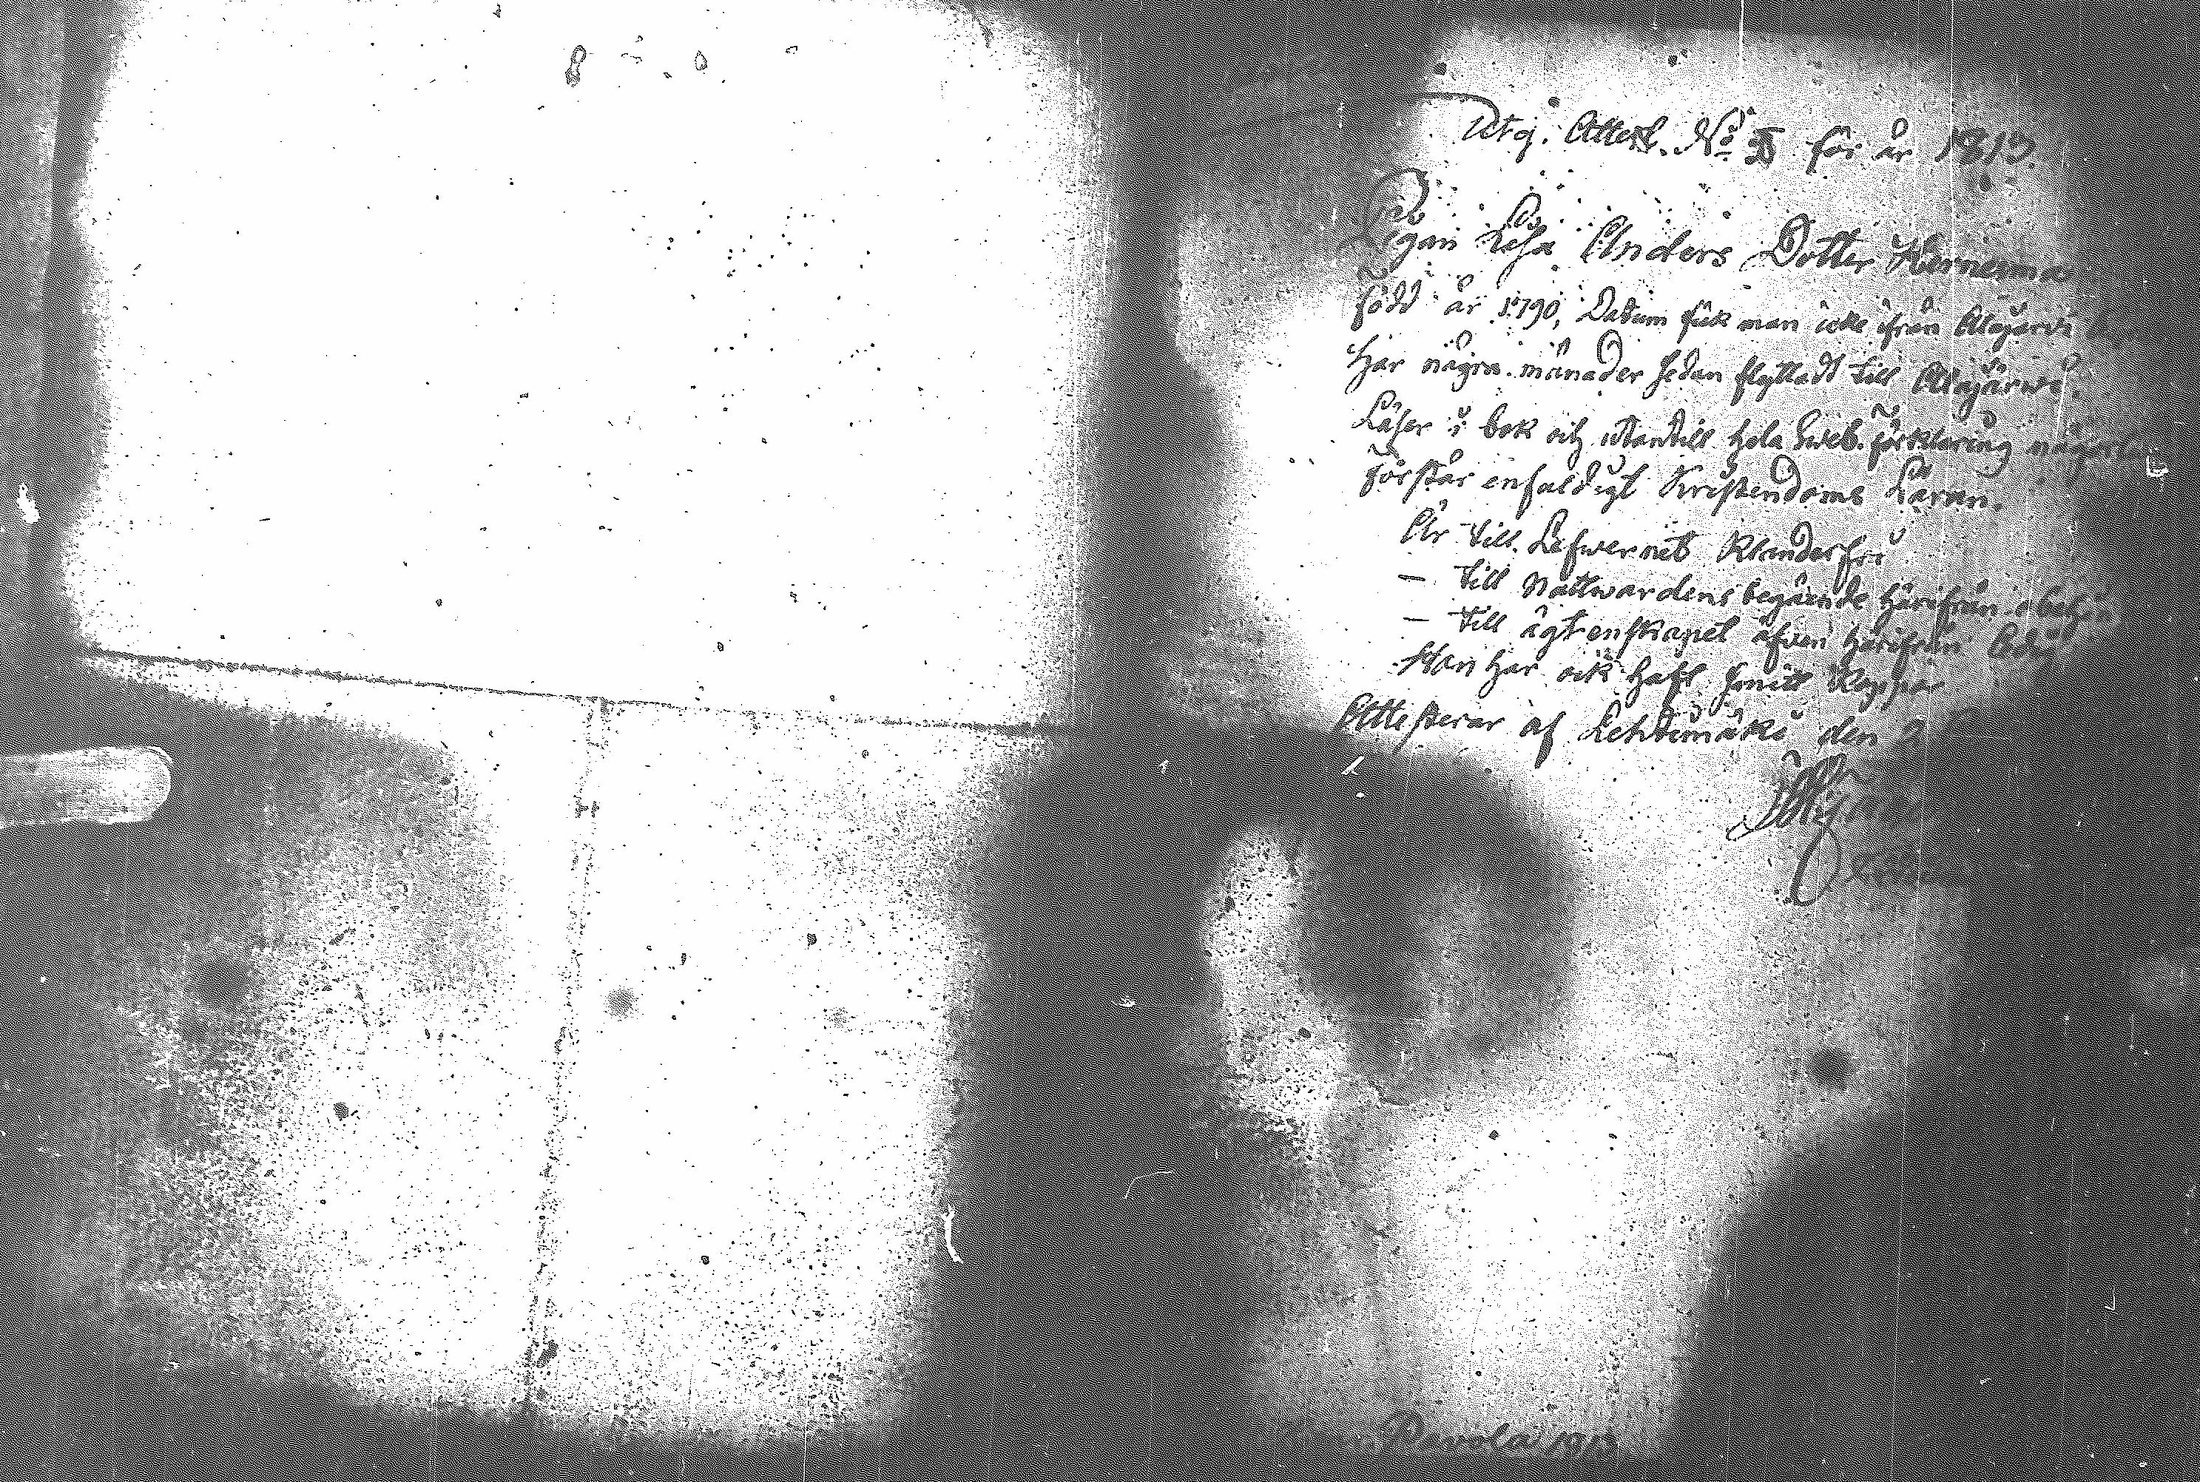 Utg. Attest. No: II för år 1813.
Pigan Lisa Anders Dotter Kernesma
född år 1790, Datum fick man icke ifrån Alajärvi
Har några månader sedan flyttadt till Alajärvi.
Läser i bok och utantill hela Sweb. förklaring
förstår enfaldigt Kristendoms Läran.
Är till Lefwernet klanderfri
— till Nattwardens begående härifrån
— till ägtenskapet äfven härifrån
Hon har ock haft
Attesterar af Lehtimäki den
Pavola